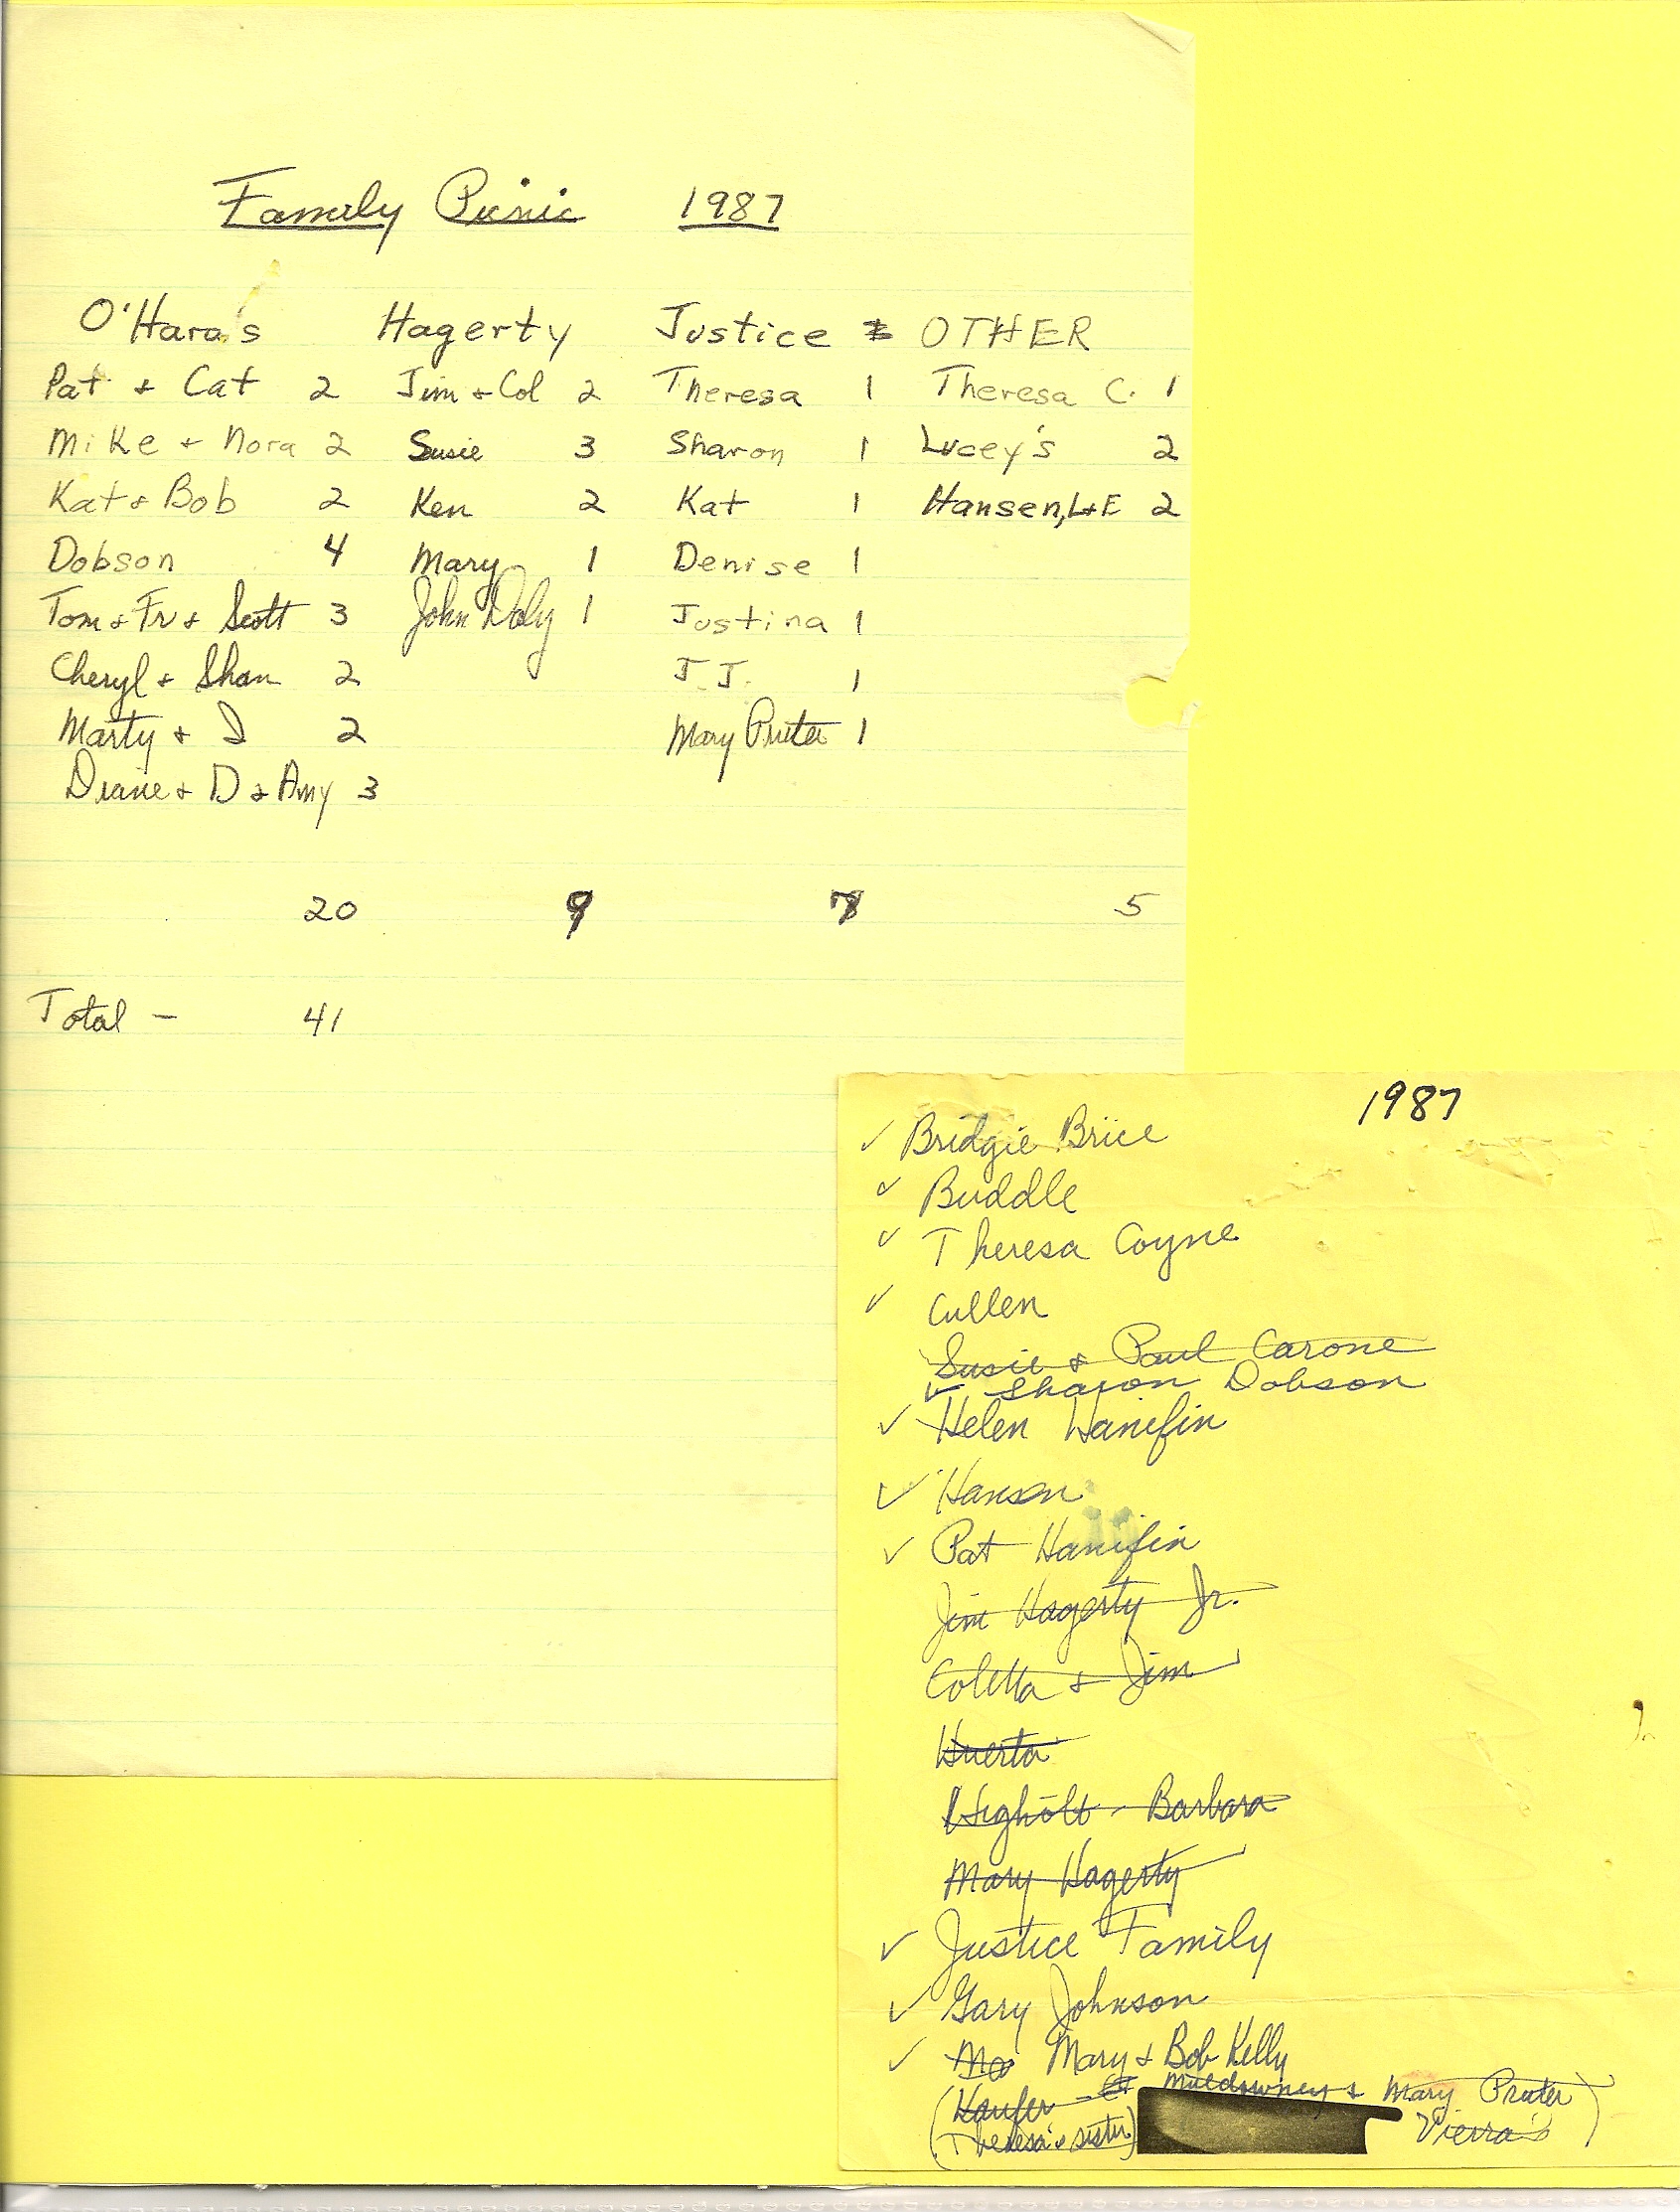 Family Picnic 1987
O'Hara's Hagerty Justice OTHER
Pat + Cat 2 Jim + Col 2 Theresa 1 Theresa C. 1
Mike + Nora 2 Susie 3 Sharon 1 Lucey's 2
Kat + Bob 2 Ken 2 Kat 1 Hansen, L+E 2
Dobson 4 Mary 1 Denise 1
Tom + Fr + Scott 3 John Daly 1 Justina 1
Cheryl + Shan 2 J.J. 1
Marty + D 2 Mary Pruter 1
Diane + D + Amy 3
20 9 7 5
Total - 41
1987
✓ Bridgie Brice
✓ Buddle
✓ Theresa Coyne
✓ Cullen
Susie + Paul Carone
✓ Sharon Dobson
✓ Helen Hanifin
✓ Hansen
✓ Pat Hanifin
Jim Hagerty Jr.
Coletta + Jim
Huerta
Barbara
Mary Hagerty
✓ Justice Family
✓ Gary Johnson
✓ Mary + Bob Kelly
(Muldowney + Mary Pruter)
(Theresa's sister) Vierra's